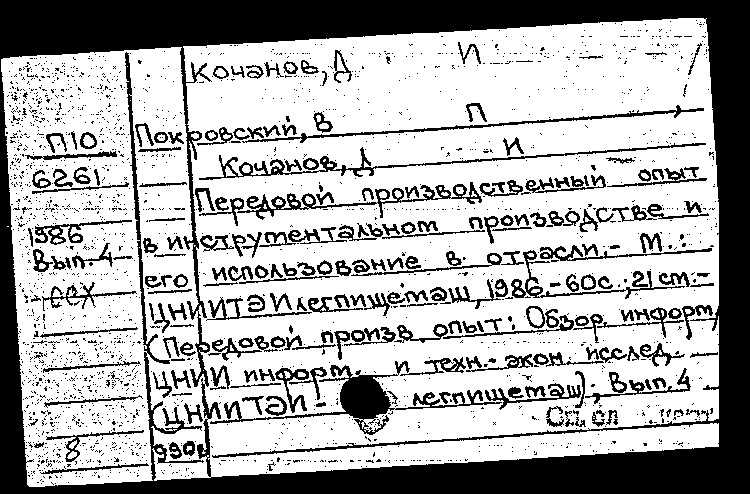 Кочанов, Д И
П10 Покровский, В П ,
6261 Кочанов, Д И
Передовой производственный опыт
1986 в инструментальном производстве и
Вып. 4 его использование в отрасли.- М.:
ССХ ЦНИИТЭИлегпищемаш, 1986.-60с.; 21см.-
(Передовой произв. опыт: Обзор. информ,
ЦНИИ информ. и техн.-экон. исслед.
(ЦНИИТЭИ- легпищемаш); Вып. 4
8 990р